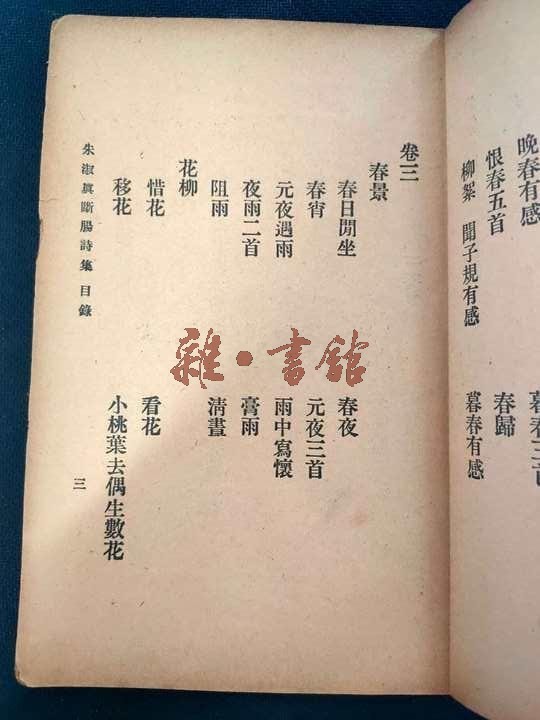 晚春有感
恨春五首
春歸
柳絮
聞子規有感
暮春有感
卷三
春景
春日閒坐
春夜
春宵
元夜三首
元夜遇雨
雨中寫懷
夜雨二首
膏雨
阻雨
淸晝
花柳
惜花
看花
移花
小桃葉去偶生數花
朱淑眞斷腸詩集
目錄
三
雜·書館